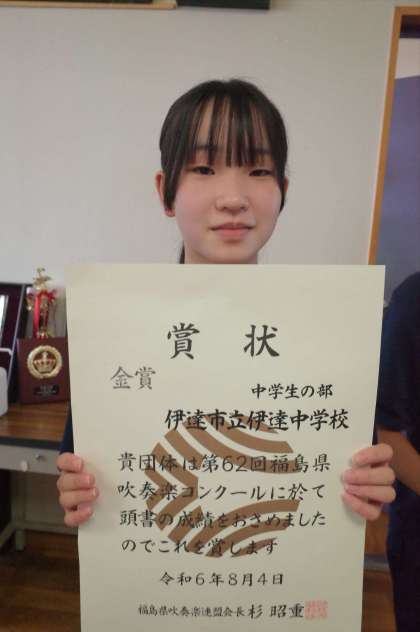 賞状
金賞
中学生の部
伊達市立伊達中学校
貴団体は第62回福島県
吹奏楽コンクールに於て
頭書の成績をおさめました
のでこれを賞します
令和6年8月4日
福島県吹奏楽連盟会長 杉 昭重